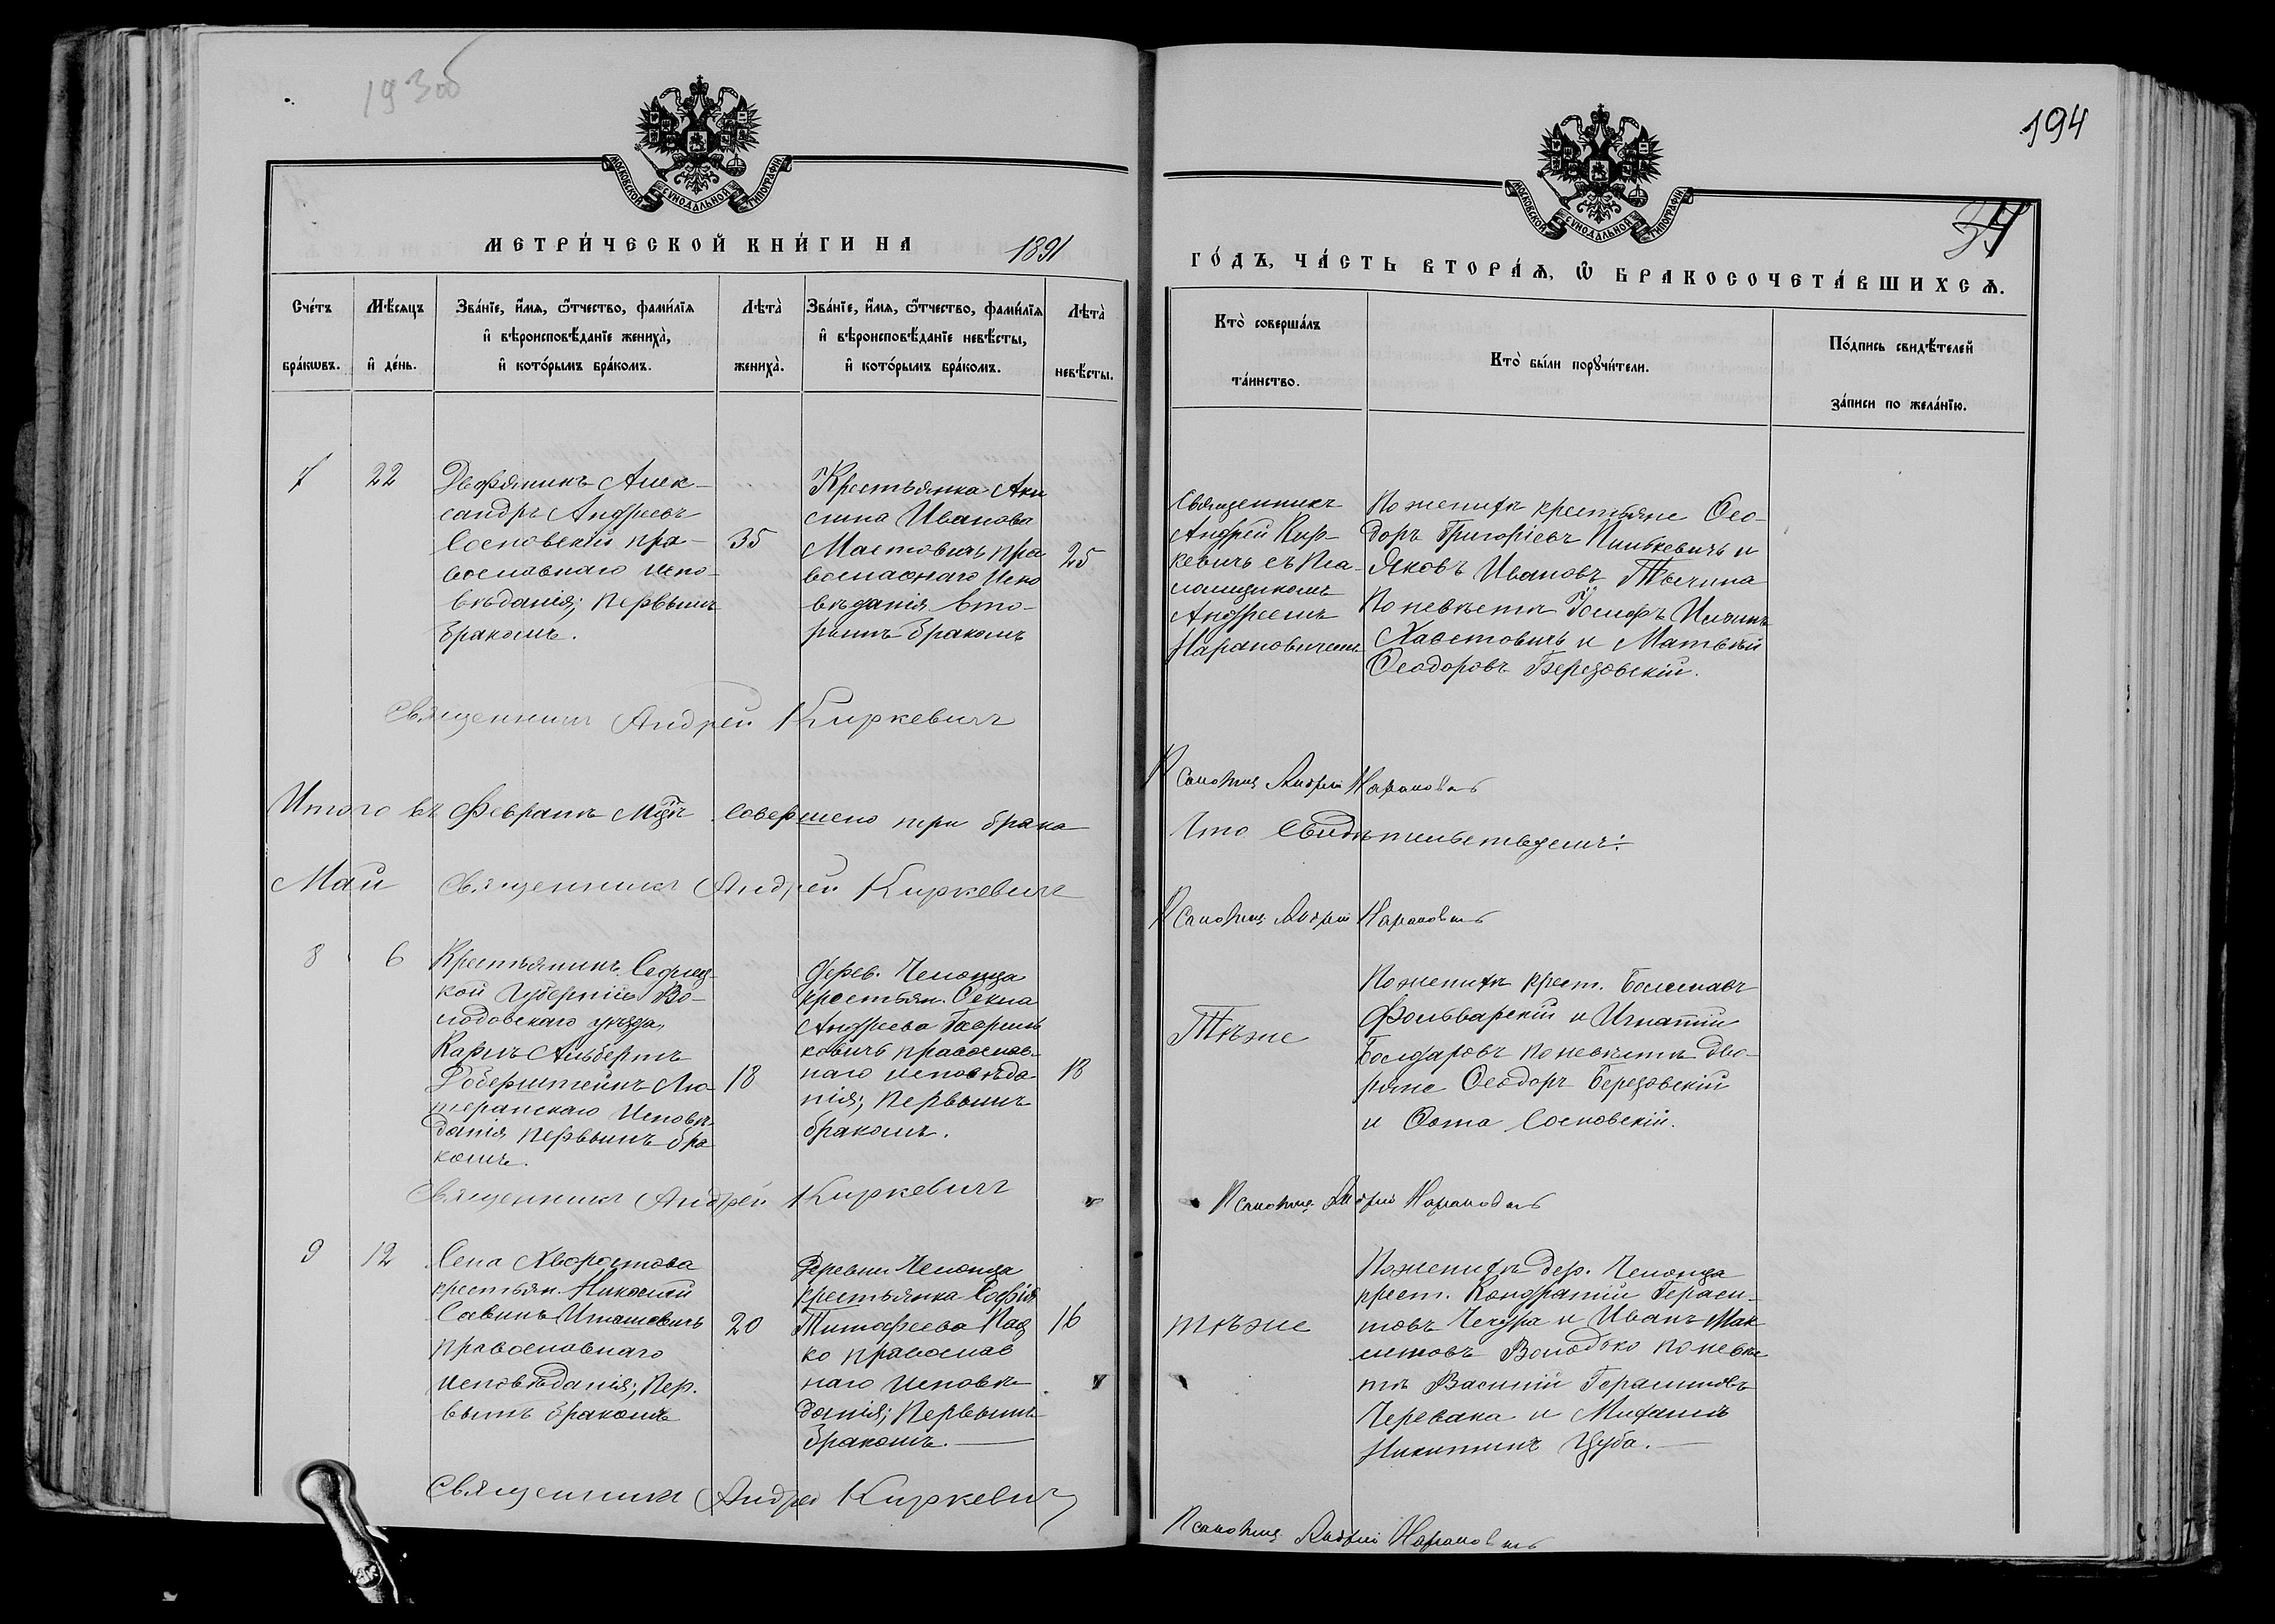 193об
МОСКОВСКОЙ СУНОДАЛЬНОЙ ТИПОГРАФИИ
МЕТРИ́ЧЕСКОЙ КНИ́ГИ НА 1891
Сче́тъ бра́кѡвъ.
Мѣ́сяцъ и҆ де́нь.
Зва́нїе, и҆́мѧ, ѻ҆́тчество, фами́лїѧ
и҆ вѣроисповѣ́данїе жениха̀,
и҆ кото́рымъ бра́комъ.
Лѣта̀ жениха̀.
Зва́нїе, и҆́мѧ, ѻ҆́тчество, фами́лїѧ
и҆ вѣроисповѣ́данїе невѣ́сты,
и҆ кото́рымъ бра́комъ.
Лѣта̀ невѣ́сты.
7
22
Дворянинъ Алек-
сандръ Андреевъ
Сосновскій пра-
вославнаго испо-
вѣданія; первымъ
бракомъ.
35
Крестьянка Аки
лина Иванова
Мастовичъ пра
вославнаго испо
вѣданія вто-
рымъ бракомъ
25
Священникъ Андрей Киркевичъ
Итого въ Февралѣ Мцѣ совершено три брака
Май Священникъ Андрей Киркевичъ
8
6
Крестьянинъ Седлец-
кой Губерніи Во-
лодовскаго уѣзда,
Карлъ Альбертъ
Роберштейнъ Лю-
теранскаго Исповѣ-
данія первымъ бра
комъ.
18
Дерев. Челонца
крестьян. Ѳекла
Андреева Гаврил
ковичъ православ-
наго исповѣда
нія; первымъ
бракомъ.
18
Священникъ Андрей Киркевичъ
9
12
Села Хворостова
крестьян. Николай
Савинъ Игнатовичъ
православнаго
исповѣданія; пер.
вымъ бракомъ
20
Деревни Челонца
крестьянка Софія
Тимофеева Пац
ко православ
наго исповѣ-
данія; первымъ
бракомъ.
16
Священникъ Андрей Киркевичъ
194
МОСКОВСКОЙ СУНОДАЛЬНОЙ ТИПОГРАФИИ
34
ГО́ДЪ, ЧА́СТЬ ВТОРА́Ѧ, Ѡ҆ БРАКОСОЧЕТА́ВШИХСѦ.
Кто̀ соверша́лъ
та́инство.
Кто̀ бы́ли порꙋчи́тели.
По́дпись свидѣ́телей
за́писи по жела́нїю.
Священникъ
Андрей Кир-
кевичъ съ Пса-
ломщикомъ
Андреемъ
Нарановичемъ
По женихѣ крестьяне Ѳео-
доръ Григоріевъ Пилькевичъ и
Яковъ Ивановъ
По невѣстѣ Іосифъ Ильинъ
Хвостовичъ и Матвѣй
Ѳеодоровъ Березовскій.
Псаломщ. Андрей Нарановичъ
Что свидѣтельствуемъ:
Псаломщ. Андрей Нарановичъ
Тѣже
По женихѣ крест. Болеславъ
Фольварскій и Игнатій
Болдаровъ по невѣстѣ дво-
ряне Ѳеодоръ Березовскій
и Ѳома Сосновскій.
Псаломщ. Андрей Нарановичъ
тѣже
По женихѣ дер. Челонца
крест. Кондратій Гераси-
мовъ Чечура и Иванъ Мак
симовъ Володько по невѣс
тѣ Василій Герасимовъ
Черевака и Михаилъ
Никитинъ Цуба.
Псаломщ. Андрей Нарановичъ